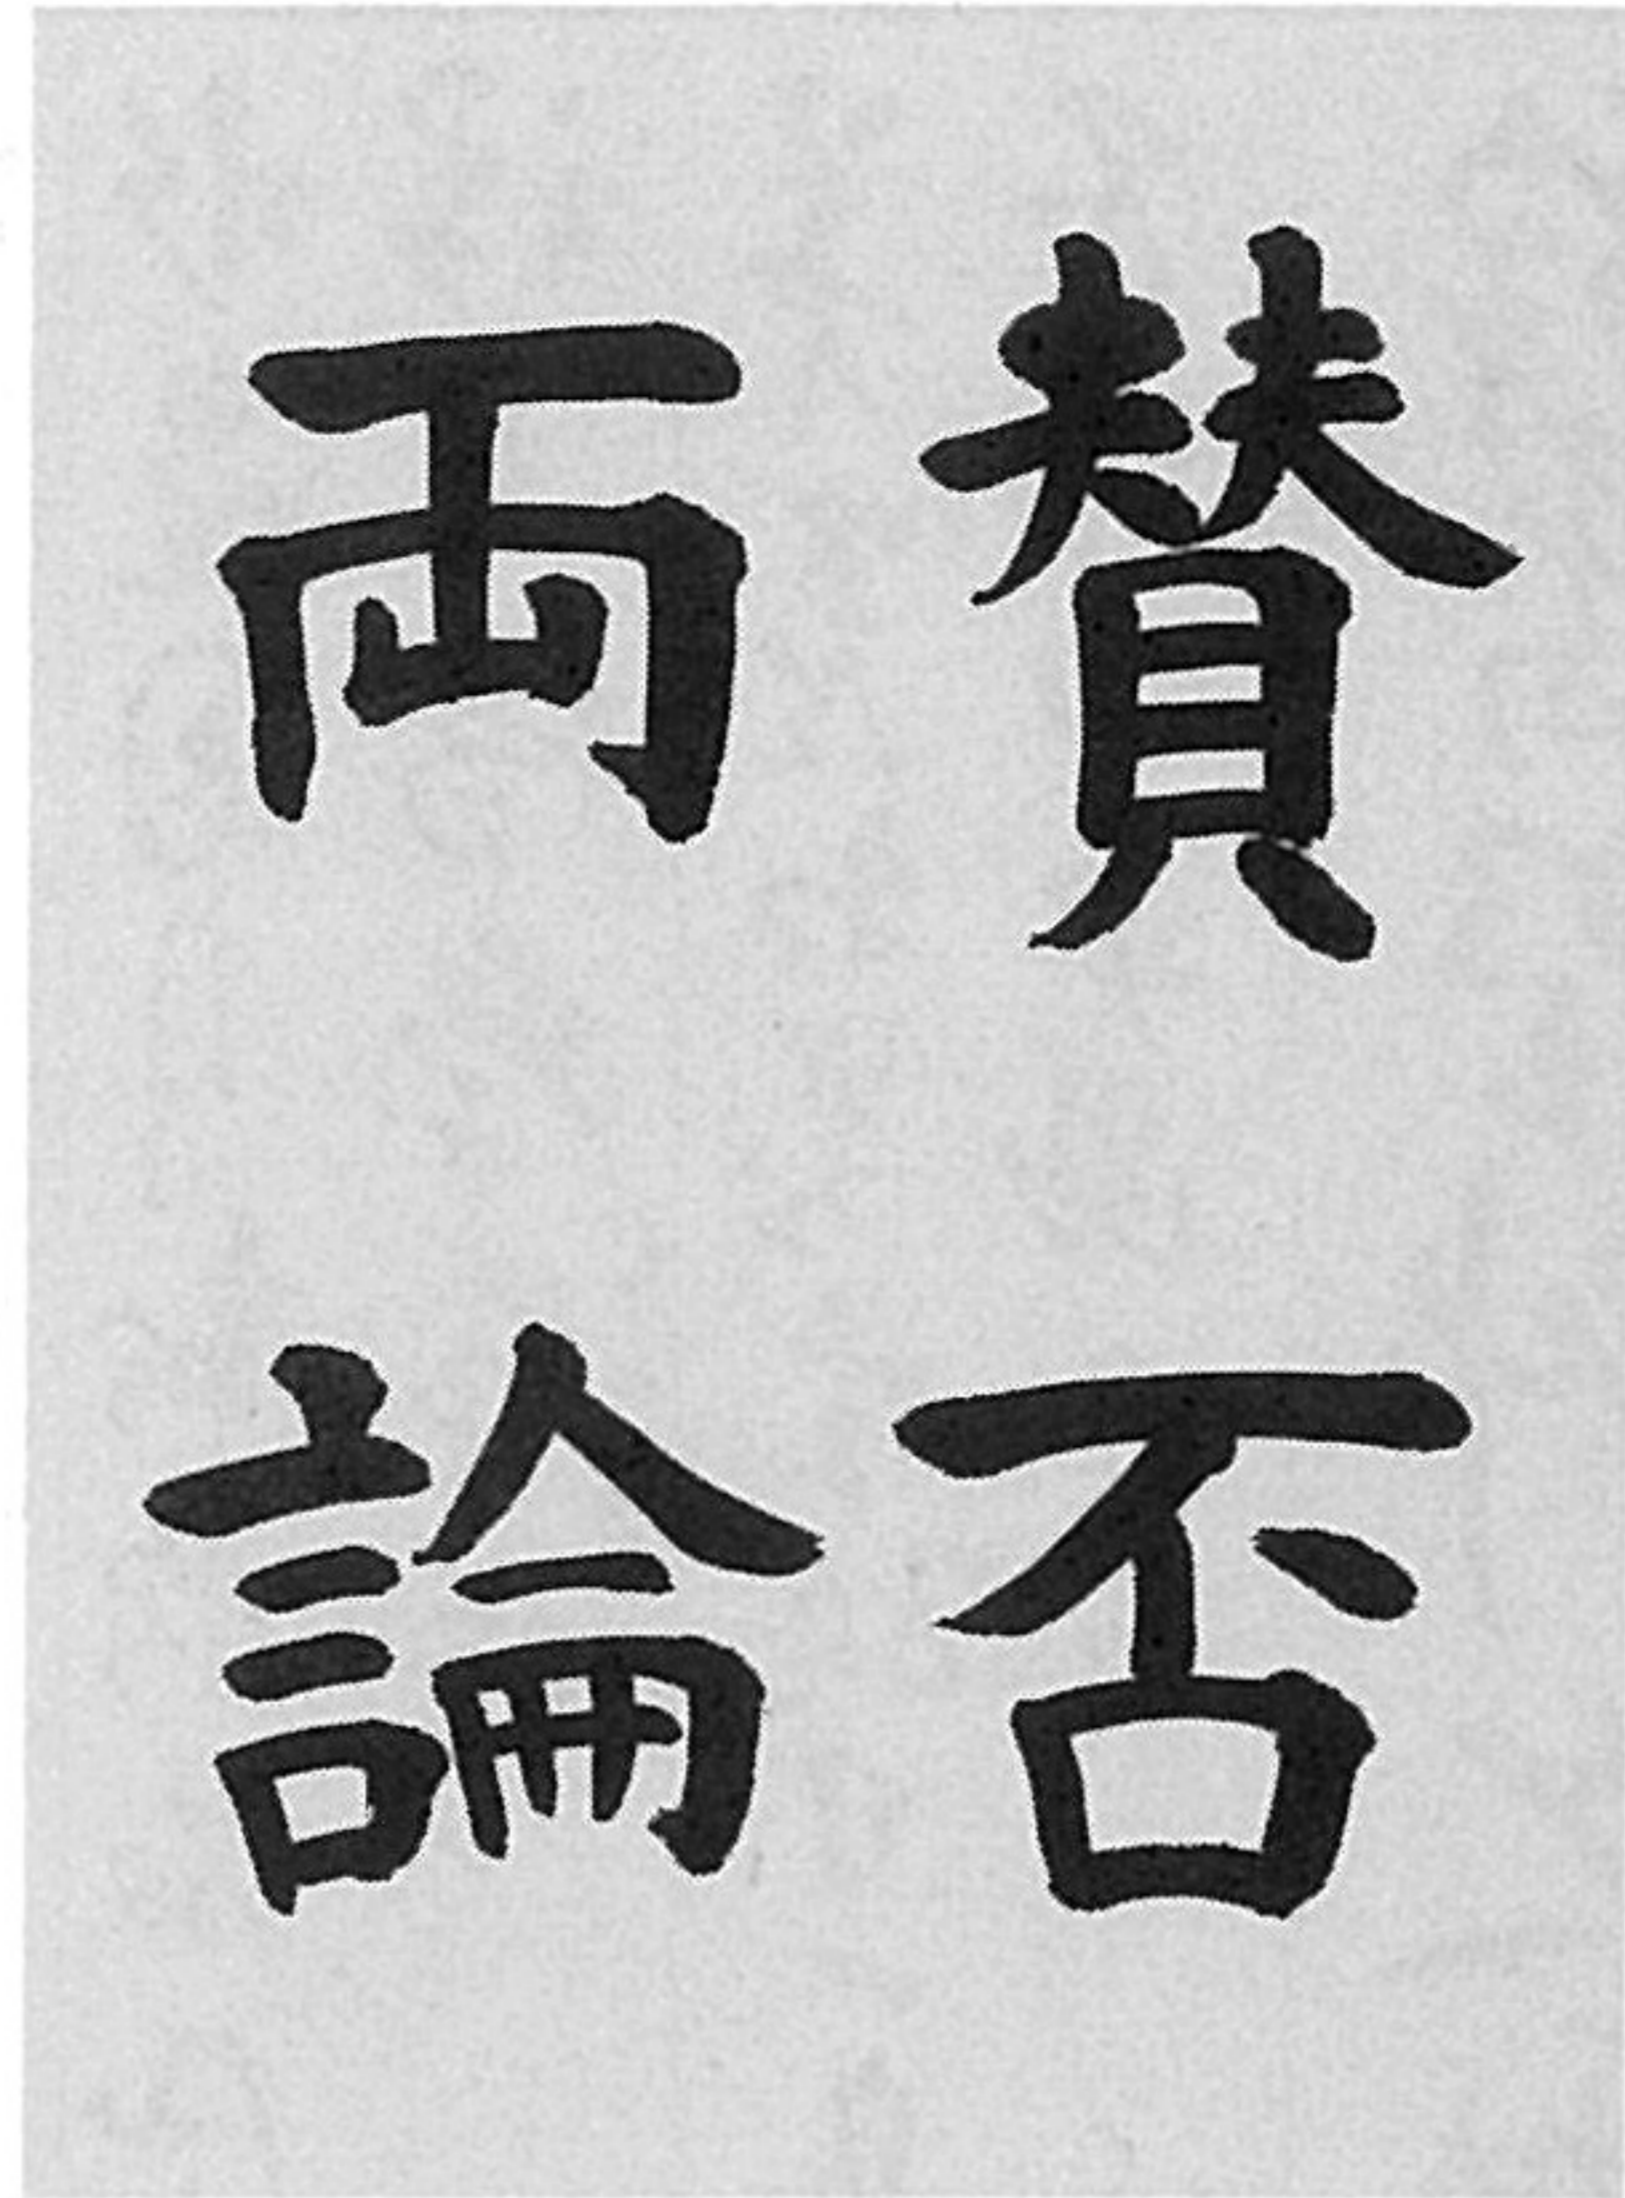 賛否
両論